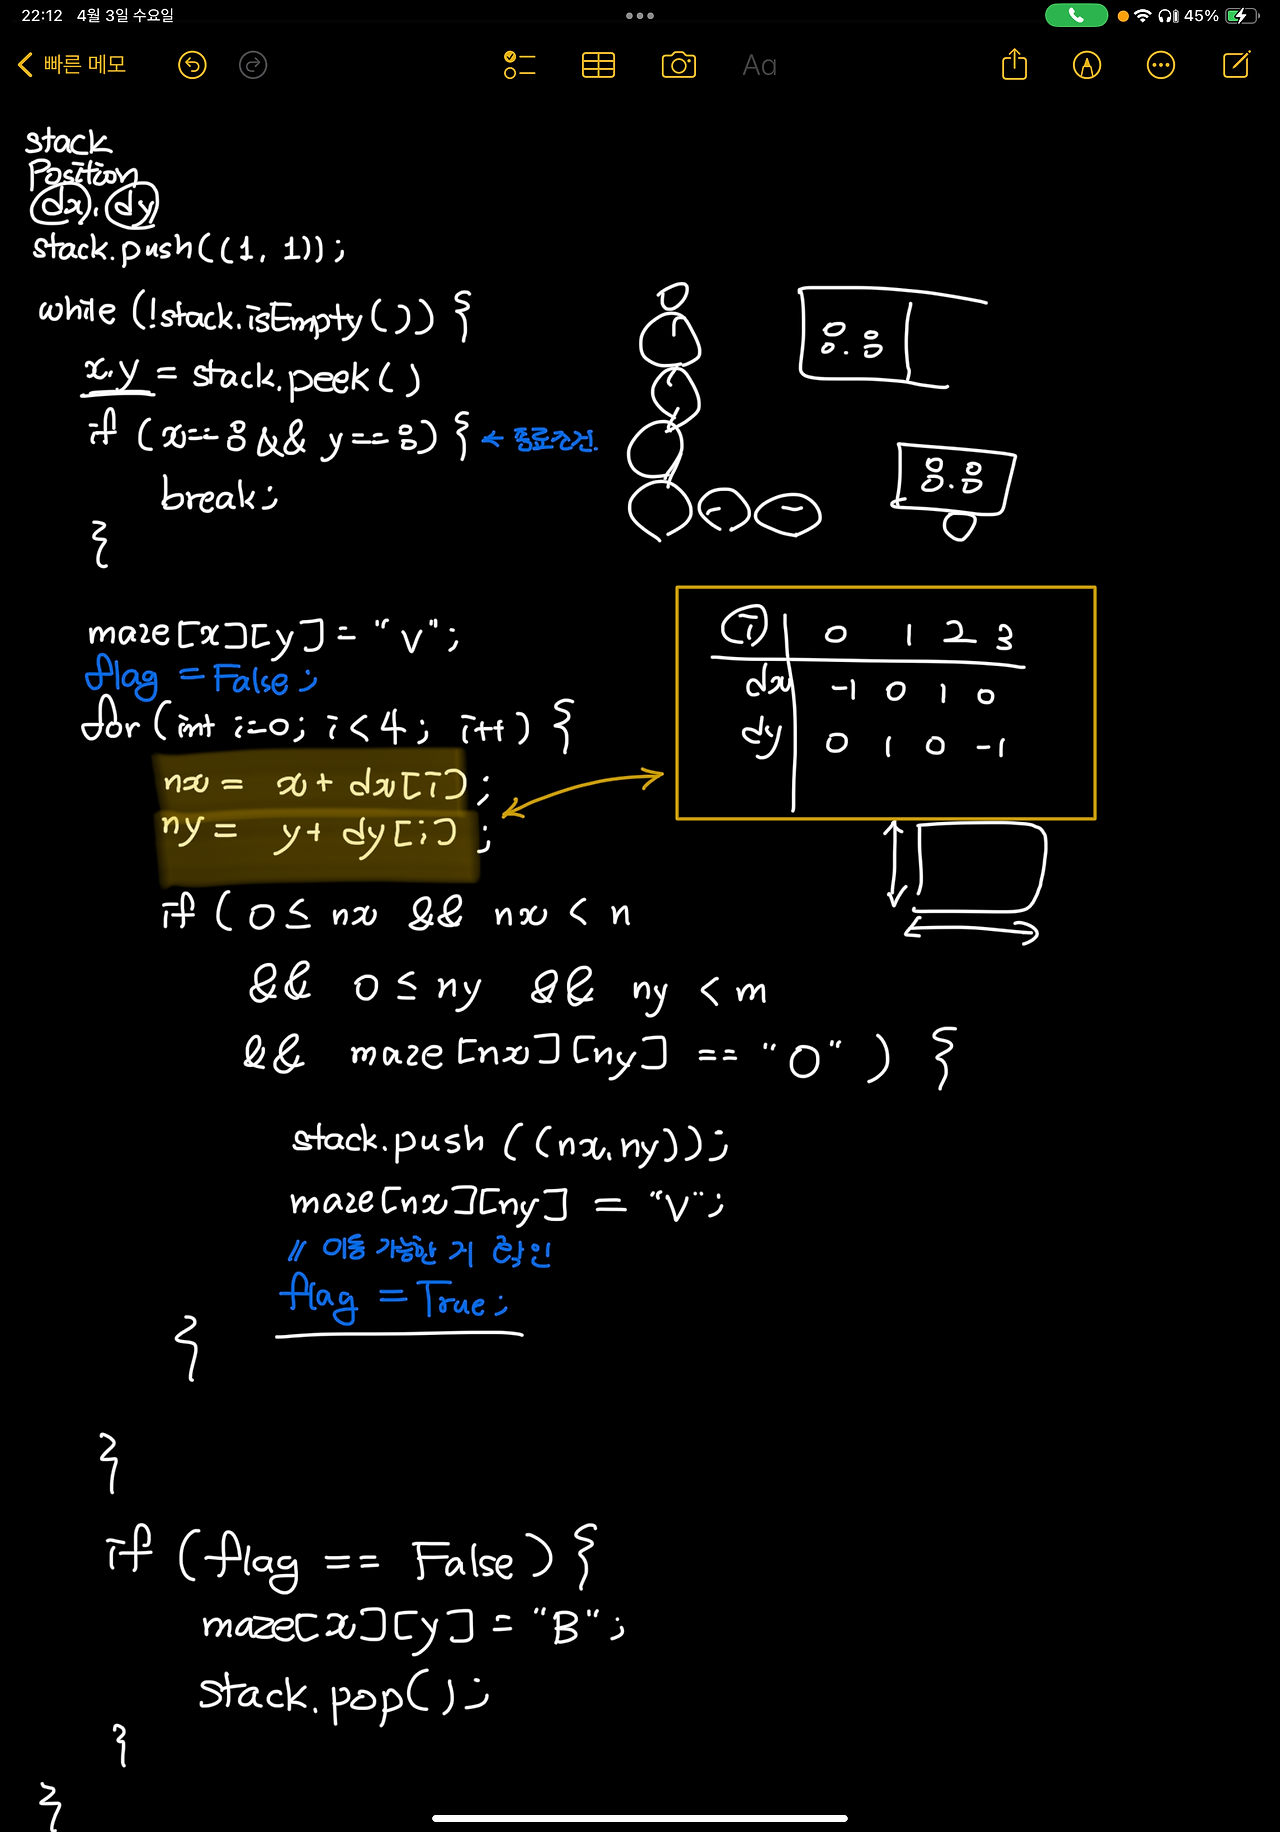 22:12 4월 3일 수요일
45%
빠른 메모
Aa
stack
Position
dx, dy
stack.push((1, 1));
while (!stack.isEmpty()) {
x.y = stack.peek()
if (x==8 && y==8) { ← 종료조건.
break;
}
8.8
8.8
maze[x][y] = "V";
flag = False;
for (int i=0; i<4; i++) {
nx = x + dx[i];
ny = y + dy[i];
i 0 1 2 3
dx -1 0 1 0
dy 0 1 0 -1
if ( 0 ≤ nx && nx < n
&& 0 ≤ ny && ny < m
&& maze[nx][ny] == "O" ) {
stack.push((nx,ny));
maze[nx][ny] = "V";
// 이동 가능한 거 확인
flag = True;
}
}
if (flag == False) {
maze[x][y] = "B";
stack.pop();
}
}